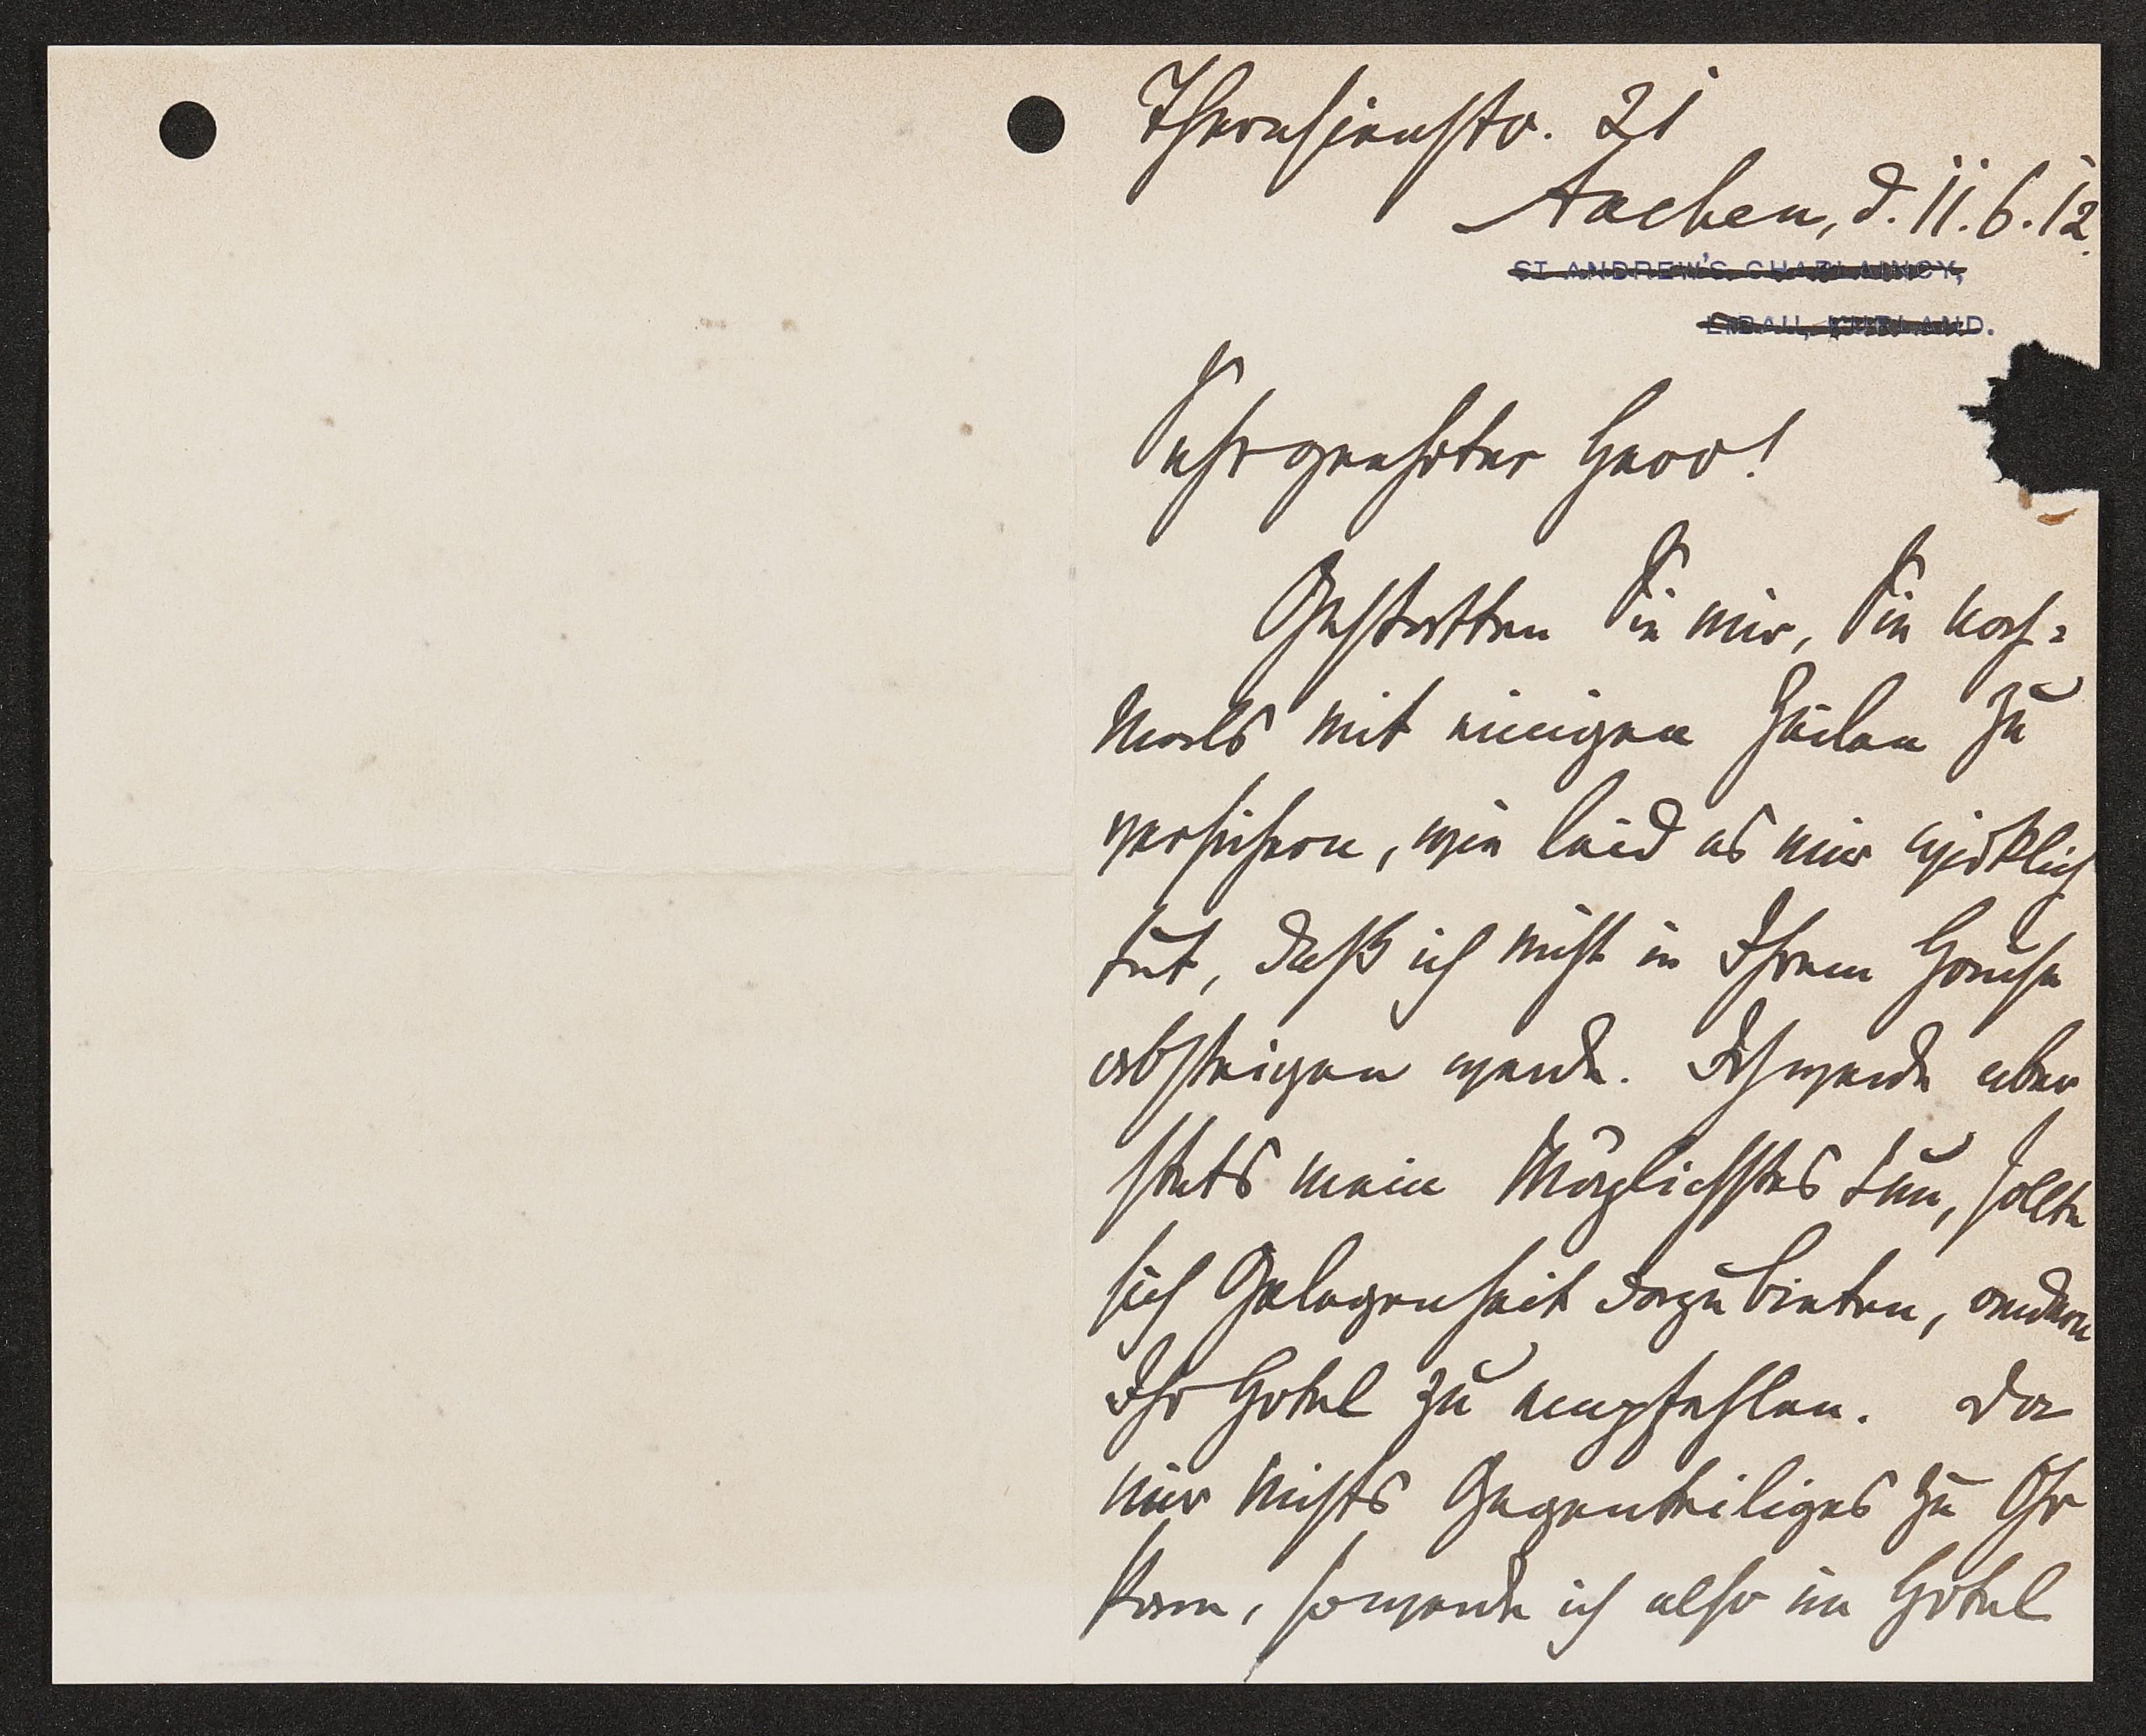 Theresienstr. 21
Aachen, d. 11.6.12.
ST ANDREW'S CHAPLAINCY,
LIBAU, KURLAND.
Sehr geehrter Herr!
Gestatten Sie mir, Sie noch=
mals mit einigen Zeilen zu
versichern, wie leid es mir wirklich
tut, daß ich nicht in Ihrem Hause
absteigen werde. Ich werde aber
stets mein Möglichstes tun, sollte
sich Gelegenheit dazu bieten, andern
Ihr Hotel zu empfehlen. Da
mir nichts Gegenteiliges zu Ohr
kam, so werde ich also im Hotel